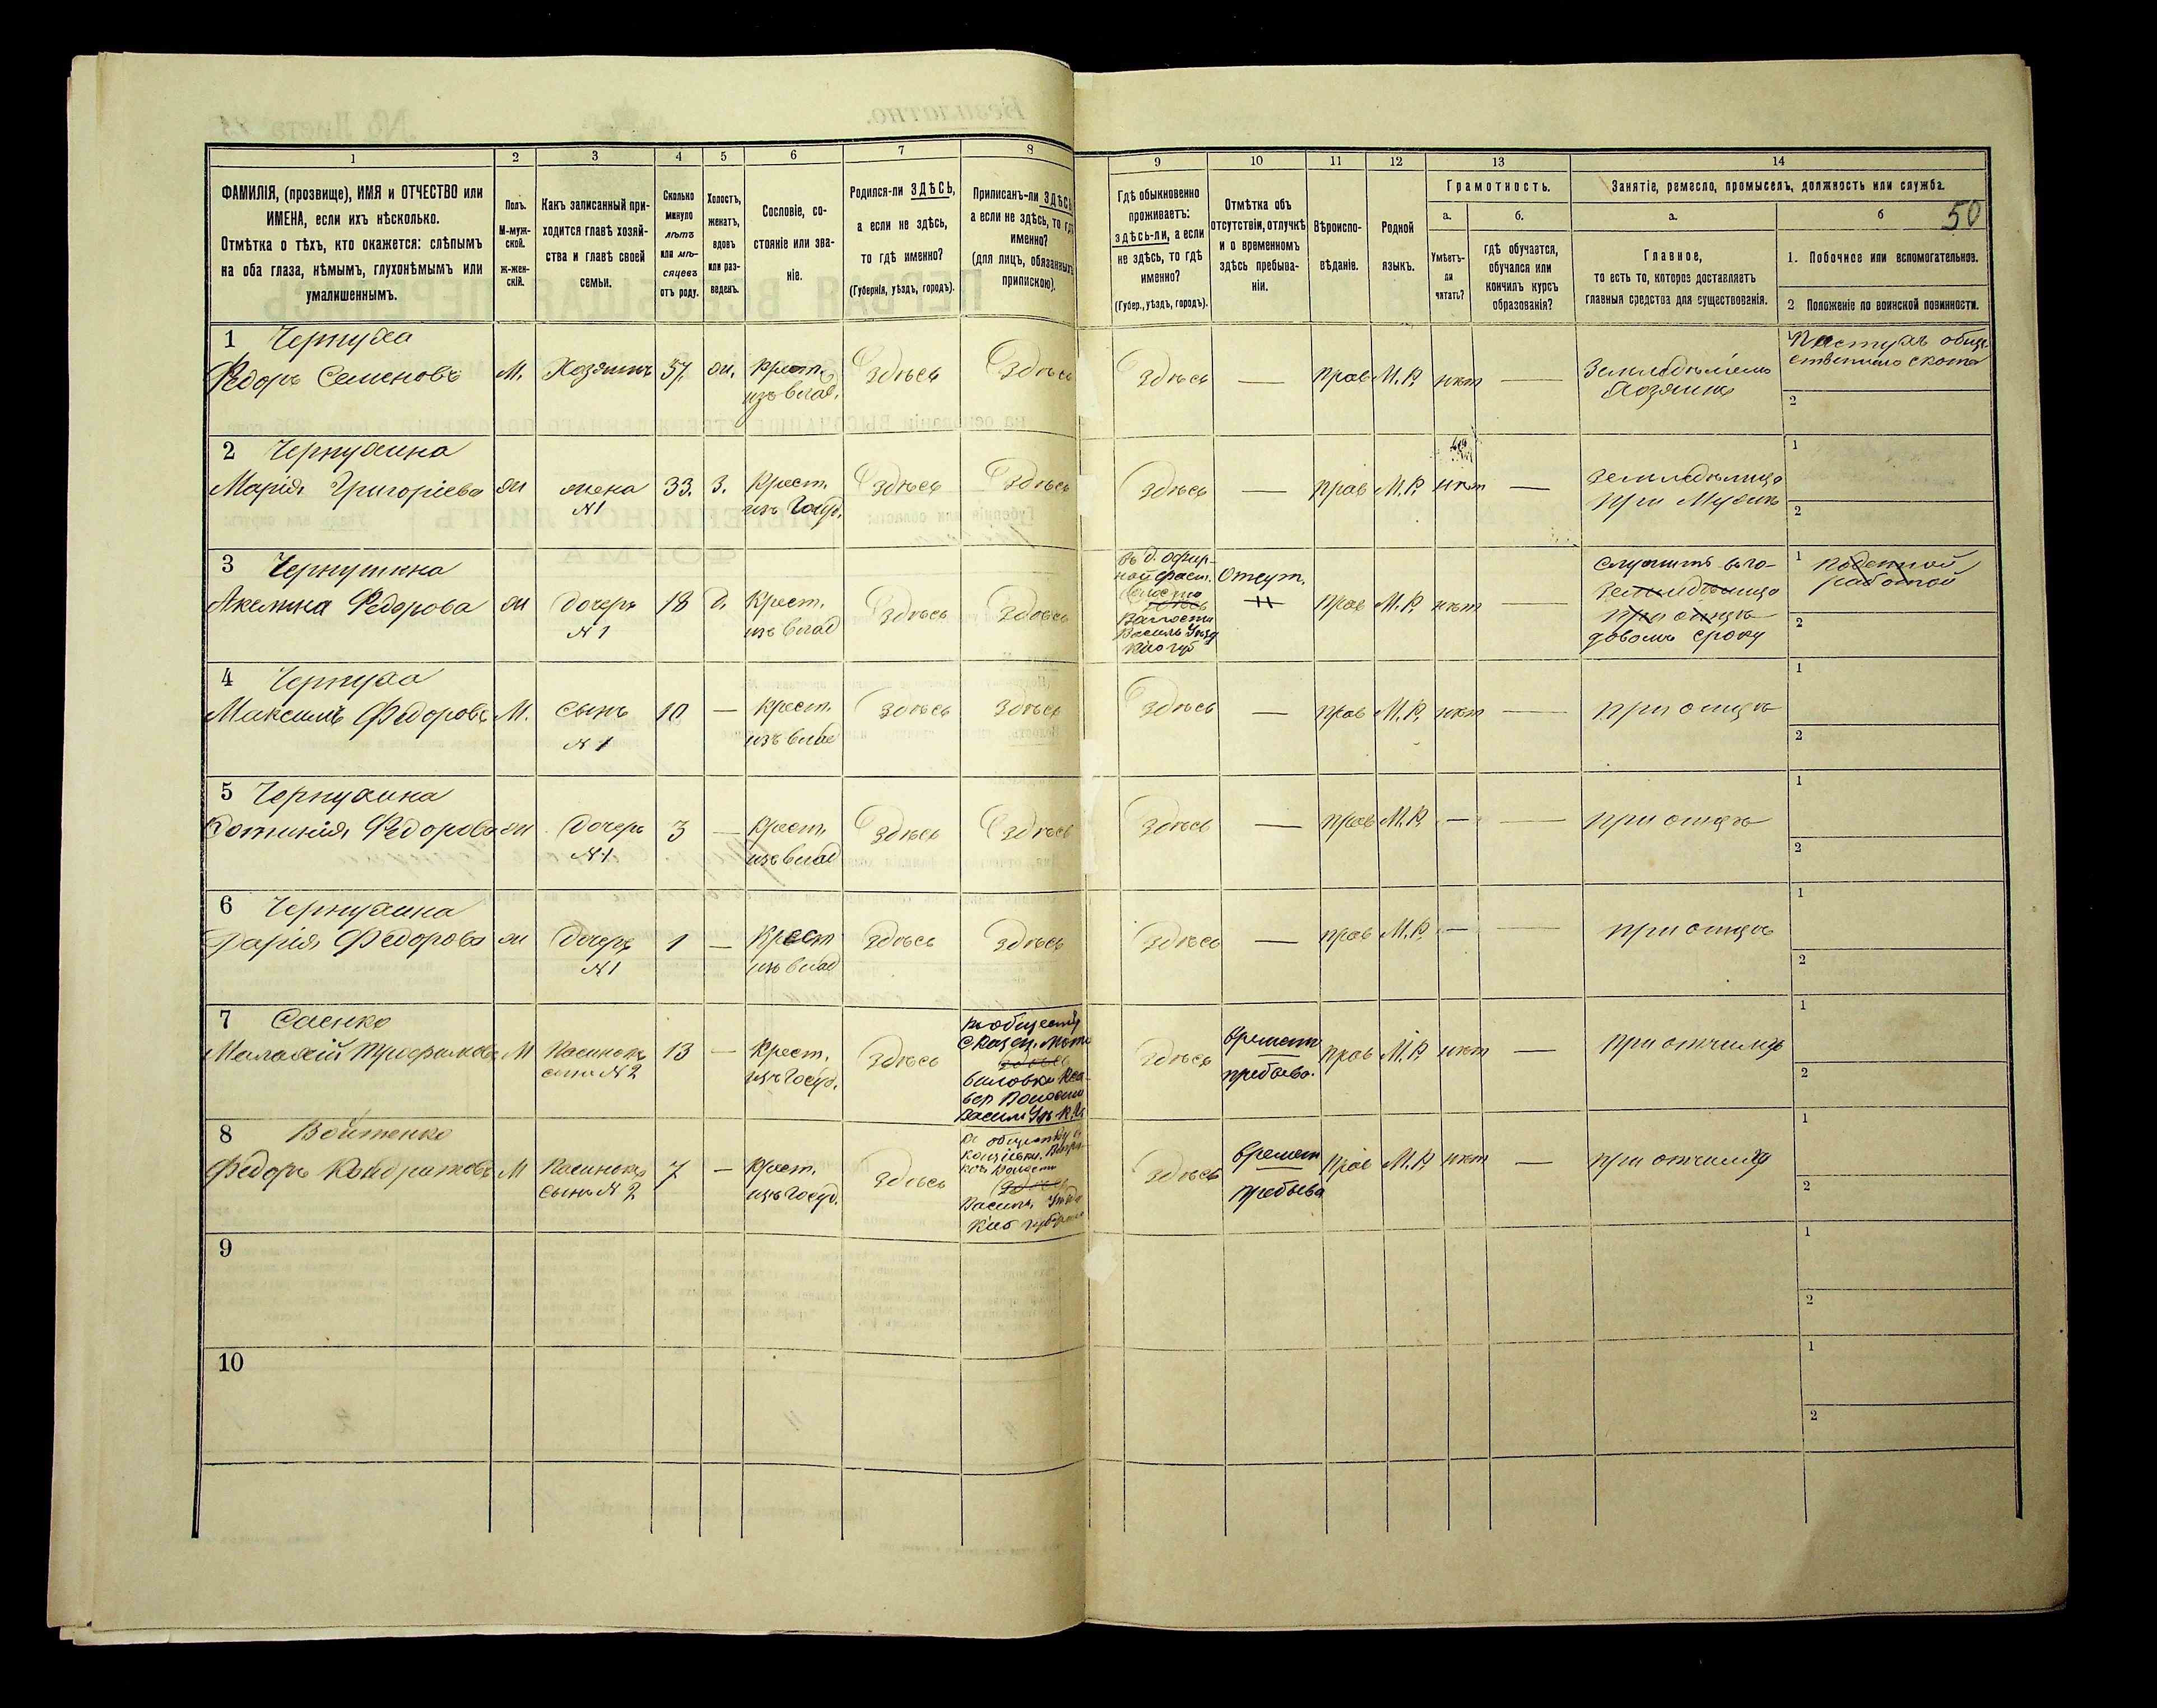 50
1
2
3
4
5
6
7
8
9
10
11
12
13
14
ФАМИЛІЯ, (прозвище), ИМЯ и ОТЧЕСТВО или
ИМЕНА, если ихъ нѣсколько.
Отмѣтка о тѣхъ, кто окажется: слѣпымъ
на оба глаза, нѣмымъ, глухонѣмымъ или
умалишеннымъ.
Полъ.
М-муж-
ской.
ж-жен-
скій.
Какъ записанный при-
ходится главѣ хозяй-
ства и главѣ своей
семьи.
Сколько
минуло
лѣтъ
или мѣ-
сяцевъ
отъ роду.
Холостъ,
женатъ,
вдовъ
или раз-
веденъ.
Сословіе, со-
стояніе или зва-
ніе.
Родился-ли ЗДѢСЬ,
а если не здѣсь,
то гдѣ именно?
(Губернія, уѣздъ, городъ).
Приписанъ-ли ЗДѢСЬ
а если не здѣсь, то гдѣ
именно?
(для лицъ, обязанныхъ
припискою).
Гдѣ обыкновенно
проживаетъ:
здѣсь-ли, а если
не здѣсь, то гдѣ
именно?
(Губер., уѣздъ, городъ).
Отмѣтка объ
отсутствіи, отлучкѣ
и о временномъ
здѣсь пребыва-
ніи.
Вѣроиспо-
вѣданіе.
Родной
языкъ.
Грамотность.
а.
Умѣетъ-
ли
читать?
б.
гдѣ обучается,
обучался или
кончилъ курсъ
образованія?
Занятіе, ремесло, промыселъ, должность или служба.
а.
Главное,
то есть то, которое доставляетъ
главныя средства для существованія.
б
1. Побочное или вспомогательное.
2 Положеніе по воинской повинности.
1 Чернуха
Федоръ Семеновъ М. Хозяинъ 37. жн. Крест. Здѣсь Здѣсь Здѣсь — прав М.Р. нѣт —
из влад.
Земледѣлецъ
Хозяинъ
1 Пастухъ общ
ественнаго скота
2
2 Чернухина
Марія Григоріева ж жена 33. З. Крест. Здѣсь Здѣсь Здѣсь — прав М.Р. нѣт —
N1 изъ Госуд.
земледѣлица
при Мужѣ
1
2
3 Чернухина
Акелина Федорова ж дочерь 18 д. Крест. Здѣсь Здѣсь
N1 изъ влад
Здѣсь
Волости
Отсут. прав М.Р. нѣт —
Служитъ
земледѣлица
при отцѣ
1 Поденной
работой
2
4 Чернуха
Максимъ Федоровъ М. Сынъ 10 — крест. Здѣсь Здѣсь Здѣсь — прав М.Р. нѣт — при отцѣ
N1 изъ влад
1
2
5 Чернухина
Фотинія Федорова ж Дочерь 3 — Крест. Здѣсь Здѣсь Здѣсь — прав М.Р. — — при отцѣ
N1 изъ влад
1
2
6 Чернухина
Дарія Федорова ж Дочерь 1 — Крест Здѣсь Здѣсь Здѣсь — прав М.Р. — — при отцѣ
N1 изъ влад
1
2
7 Саенко
Малахій Трофимовъ М Пасинокъ 13 — Крест. Здѣсь
сынъ N2 изъ Госуд.
Здѣсь
Здѣсь времен прав М.Р. нѣт при отчимѣ
пребыва.
1
2
8 Войтенко
Федоръ Кондратовъ М Пасинокъ 7 — Крест. Здѣсь
сынъ N2 изъ Госуд.
Волости
Здѣсь
Здѣсь времен прав М.Р. нѣт — при отчимѣ
пребыва
1
2
9
1
2
10
1
2